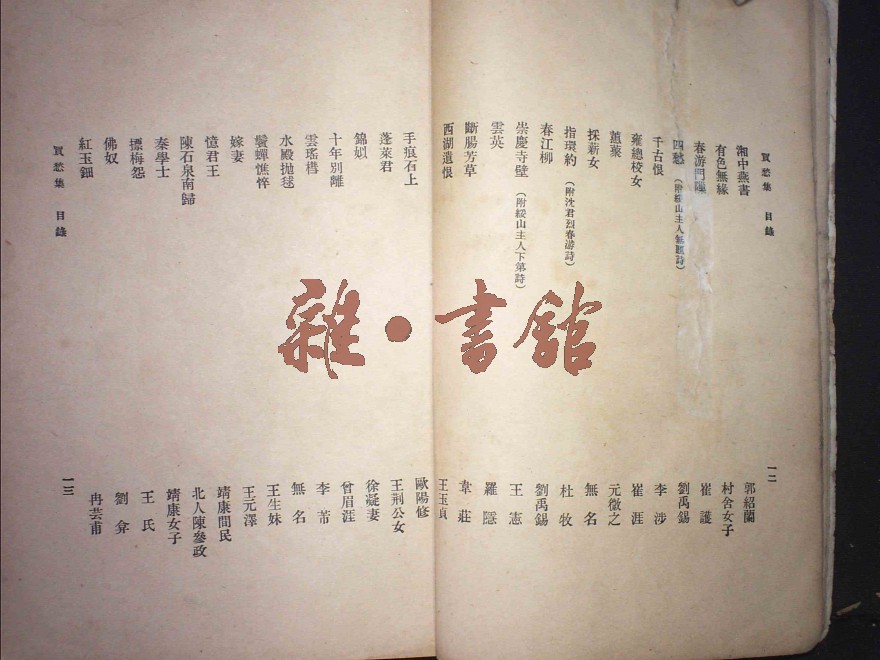 買愁集 目錄 一二
湘中燕書 郭紹蘭
有色無緣 村舍女子
春游門 崔護
四愁（附綏山主人無題詩） 劉禹錫
千古恨 李涉
雍總校女 崔涯
薑蒙 元微之
採薪女 無名
指環約（附沈君烈春游詩） 杜牧
春江柳 劉禹錫
崇慶寺壁（附綏山主人下第詩） 王憲
雲英 羅隱
斷腸芳草 韋莊
西湖遺恨 王玉貞
手痕石上 歐陽修
蓬萊君 王荊公女
錦姒 徐凝妻
十年別離 曾眉涯
雲瑤 李芾
水殿拋毬 無名
鬢蟬憔悴 王生妹
嫁妻 王元澤
憶君王 靖康間民
陳石泉南歸 北人陳參政
秦學士 靖康女子
摽梅怨 王氏
佛奴 劉弇
紅玉鈿 冉芸甫
買愁集 目錄 一三
雜·書館